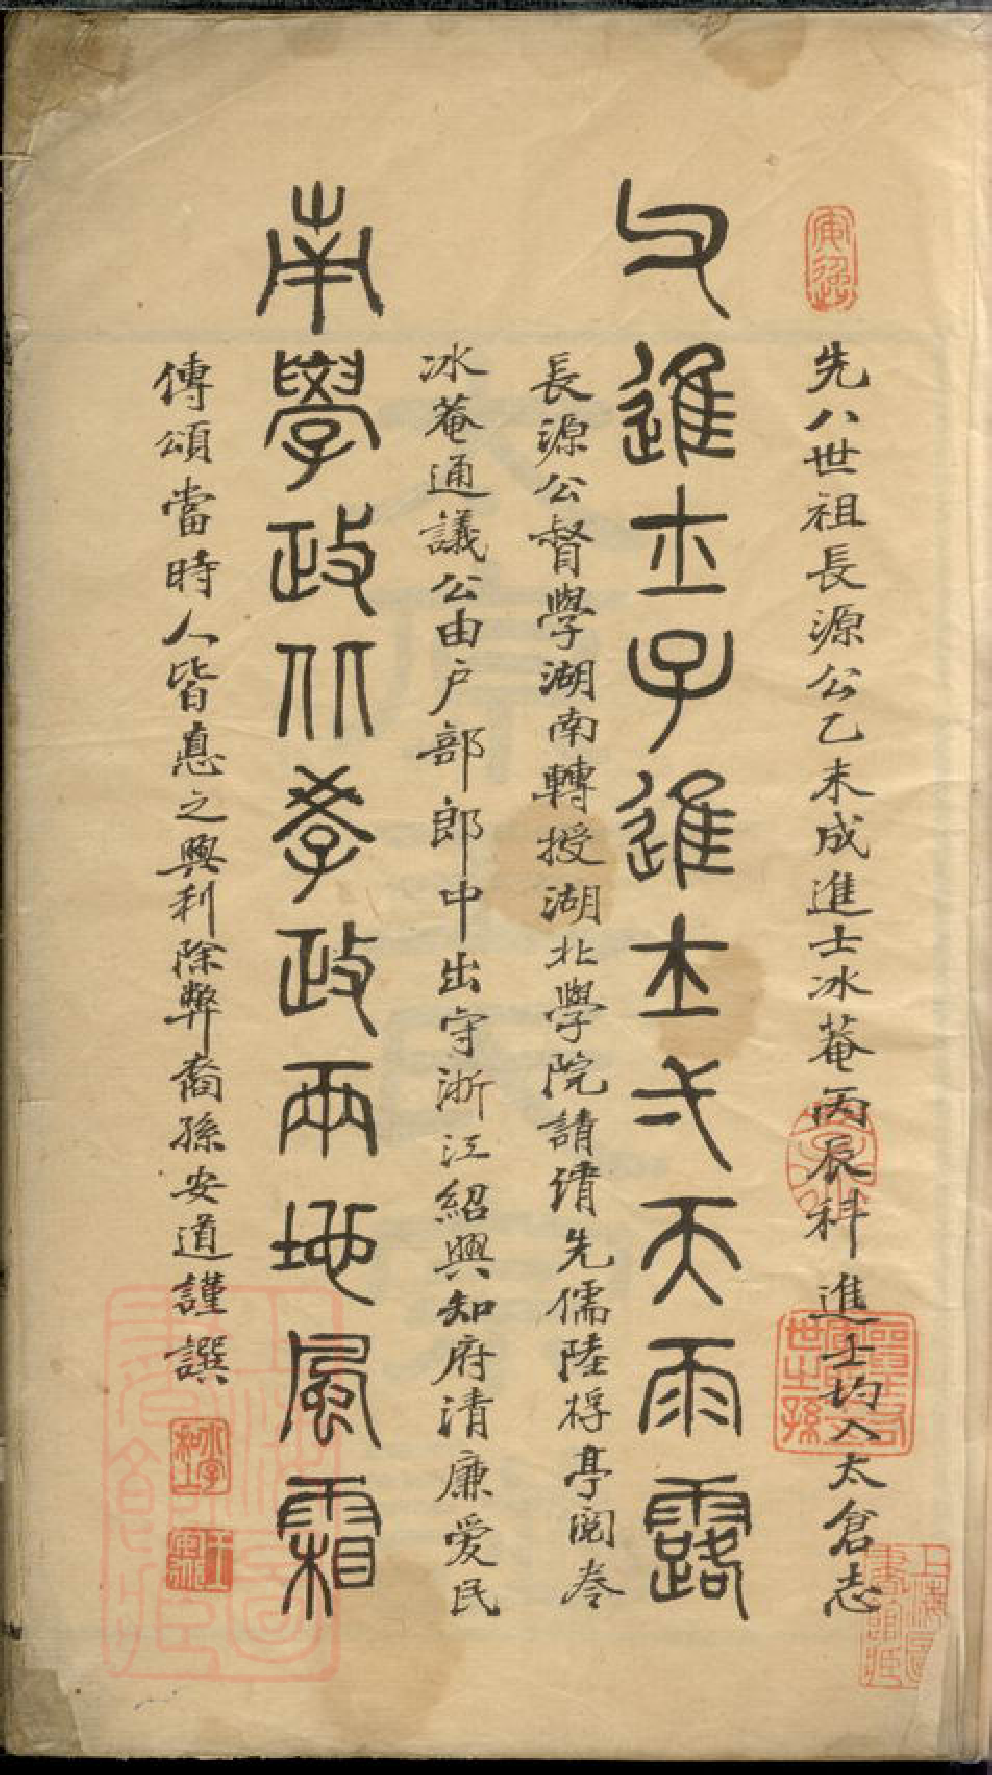 先八世祖長源公乙未成進士冰菴丙辰科進士均入太倉志
父進士子進士弌天雨露
長源公督學湖南轉授湖北學院請清先儒陸桴亭閱卷
冰菴通議公由户部郎中出守浙江紹興知府清廉爱民
南學政北學政兩地風霜
傳頌當時人皆惪之興利除弊裔孫安道謹譔
上海圖書館藏